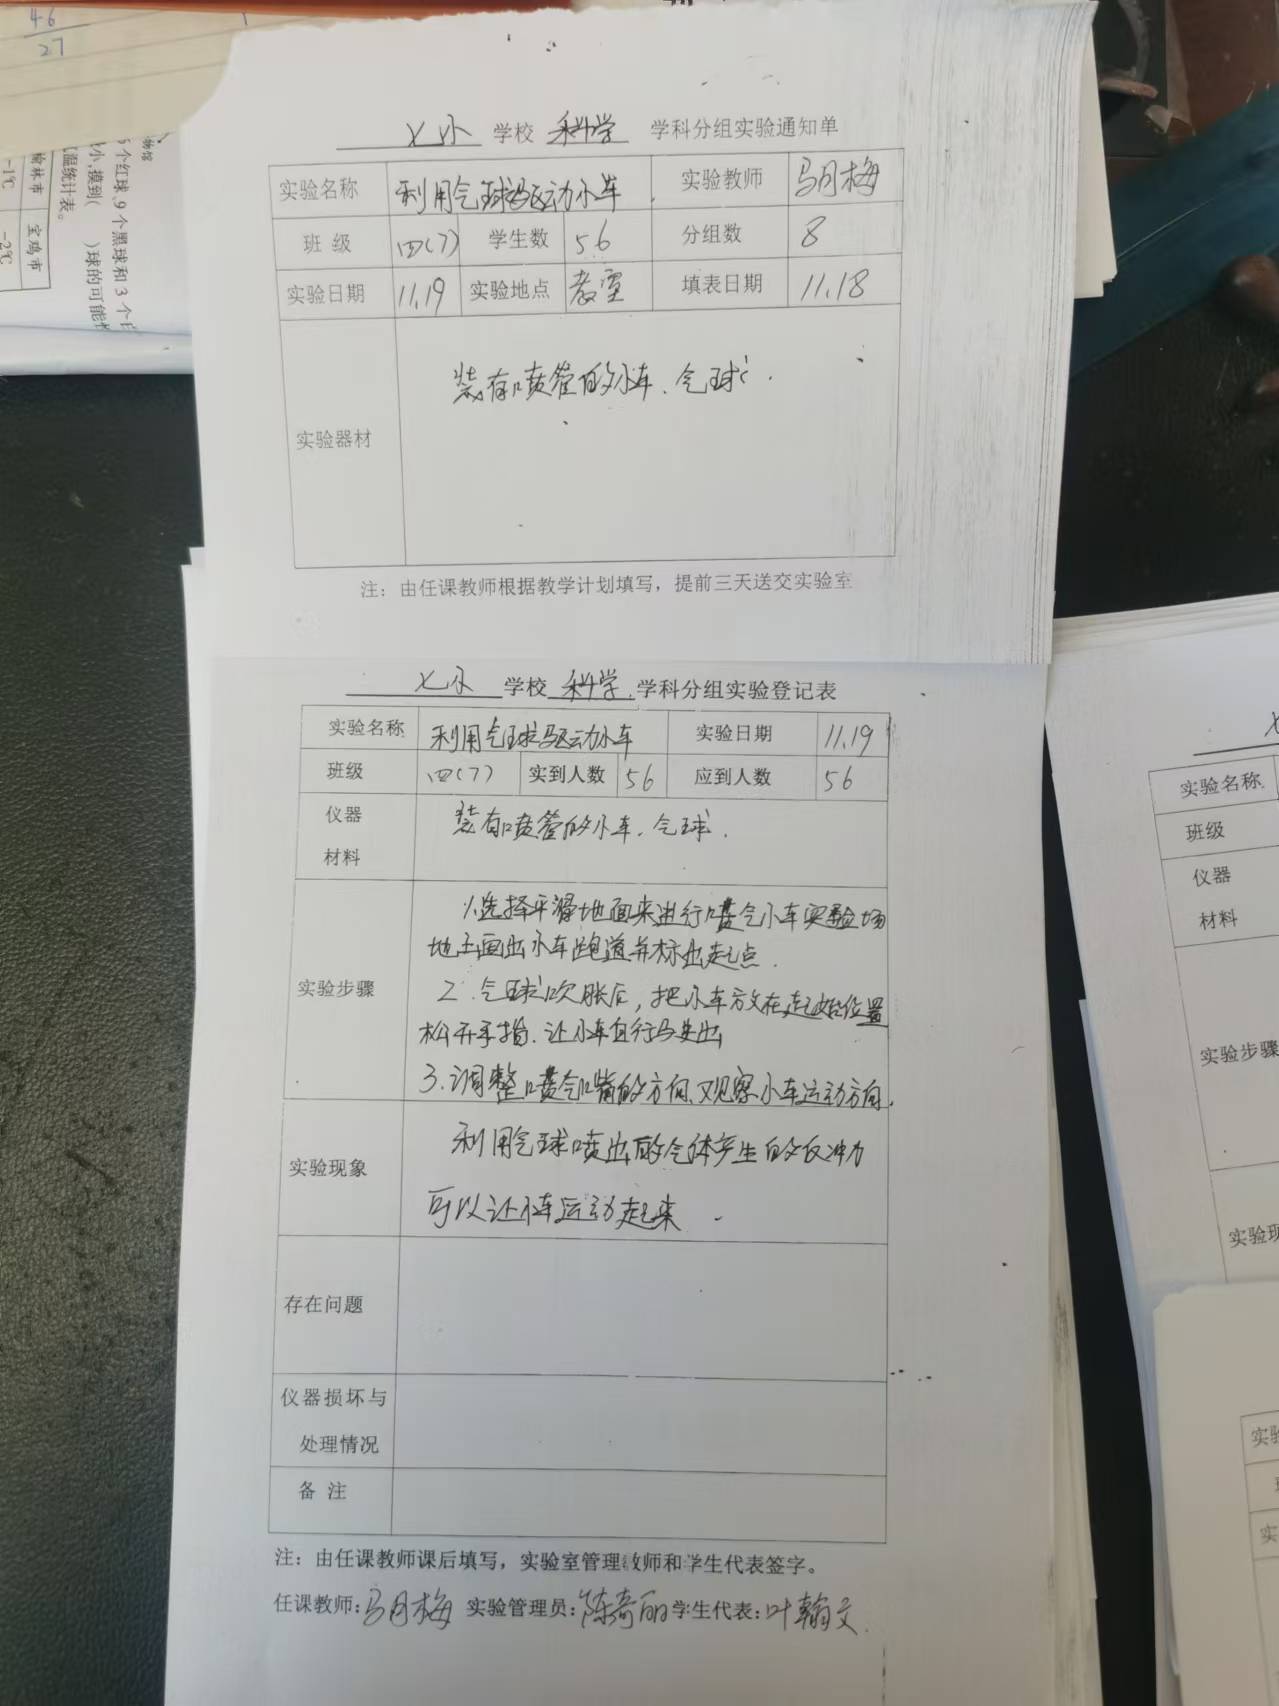 46
27
物馆
5个红球、9个黑球和3个
小,摸到( )球的可能性
气温统计表。
榆林市 宝鸡市
-1℃ -2℃
七小 学校 科学 学科分组实验通知单
实验名称 利用气球驱动小车 实验教师 马月梅
班 级 四(7) 学生数 56 分组数 8
实验日期 11.19 实验地点 教室 填表日期 11.18
实验器材 装有喷管的小车、气球.
注：由任课教师根据教学计划填写，提前三天送交实验室
七小 学校 科学 学科分组实验登记表
实验名称 利用气球驱动小车 实验日期 11.19
班级 四(7) 实到人数 56 应到人数 56
仪器
材料
装有喷管的小车、气球.
实验步骤
1.选择平滑地面来进行喷气小车实验场
地上画出小车跑道并标出起点.
2.气球吹胀后，把小车放在起始位置
松开手指.让小车自行马出
3.调整喷气嘴的方向、观察小车运动方向.
实验现象
利用气球喷出的气体产生的反冲力
可以让小车运动起来.
存在问题
仪器损坏与
处理情况
备 注
注：由任课教师课后填写，实验室管理教师和学生代表签字。
任课教师:马月梅 实验管理员:陈奇丽 学生代表:叶翰文
实验名称
班级
仪器
材料
实验步骤
实验现